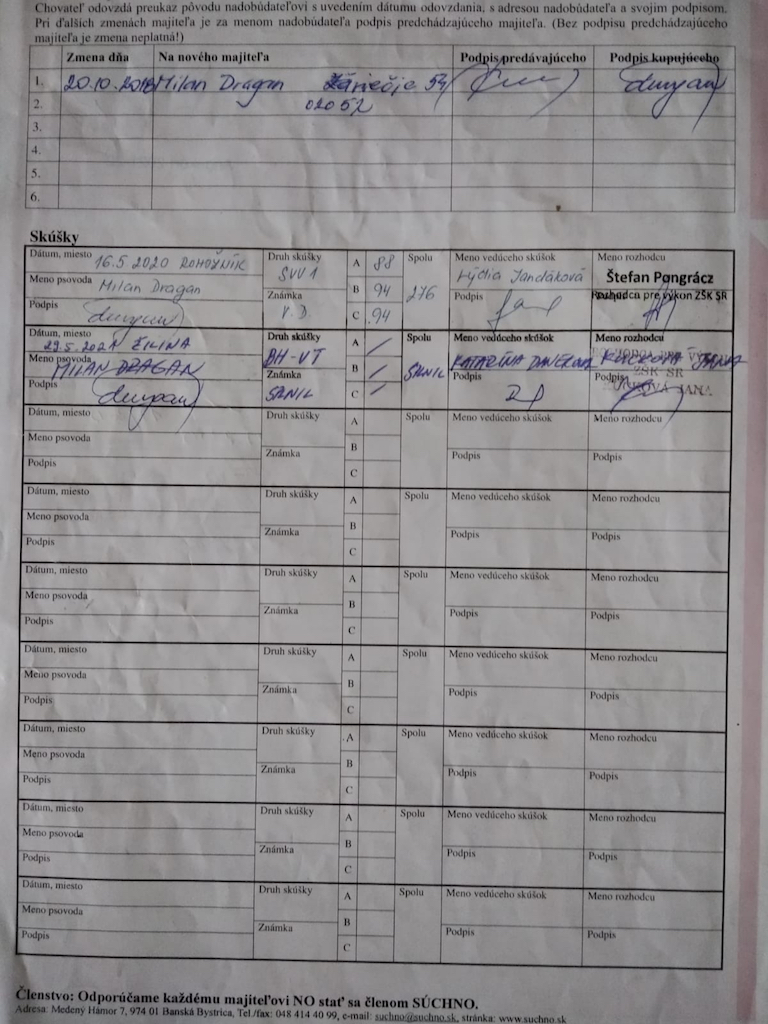 Chovateľ odovzdá preukaz pôvodu nadobúdateľovi s uvedením dátumu odovzdania, s adresou nadobúdateľa a svojím podpisom.
Pri ďalších zmenách majiteľa je za menom nadobúdateľa podpis predchádzajúceho majiteľa. (Bez podpisu predchádzajúceho
majiteľa je zmena neplatná!)
Zmena dňa Na nového majiteľa Podpis predávajúceho Podpis kupujúceho
1. 20.10.2018 Milan Dragan Záriečie 54
2. 02052
3.
4.
5.
6.
Skúšky
Dátum, miesto 16.5 2020 ROHOŽNÍK Druh skúšky SVV1 A 88 Spolu Meno vedúceho skúšok Meno rozhodcu
Meno psovoda Milan Dragan Známka V.D. B 94 276 Lýdia Jandáková Štefan Pongrácz
Podpis C 94 Podpis Rozhodca pre výkon ZŠK SR
Dátum, miesto 29.5.2021 ŽILINA Druh skúšky BH-VT A / Spolu Meno vedúceho skúšok Meno rozhodcu
Meno psovoda MILAN DRAGAN Známka B / KATARÍNA
Podpis C / Podpis Podpis ZŠK SR
JANA
Dátum, miesto Druh skúšky A Spolu Meno vedúceho skúšok Meno rozhodcu
Meno psovoda Známka B Podpis Podpis
Podpis C
Dátum, miesto Druh skúšky A Spolu Meno vedúceho skúšok Meno rozhodcu
Meno psovoda Známka B Podpis Podpis
Podpis C
Dátum, miesto Druh skúšky A Spolu Meno vedúceho skúšok Meno rozhodcu
Meno psovoda Známka B Podpis Podpis
Podpis C
Dátum, miesto Druh skúšky A Spolu Meno vedúceho skúšok Meno rozhodcu
Meno psovoda Známka B Podpis Podpis
Podpis C
Dátum, miesto Druh skúšky A Spolu Meno vedúceho skúšok Meno rozhodcu
Meno psovoda Známka B Podpis Podpis
Podpis C
Dátum, miesto Druh skúšky A Spolu Meno vedúceho skúšok Meno rozhodcu
Meno psovoda Známka B Podpis Podpis
Podpis C
Dátum, miesto Druh skúšky A Spolu Meno vedúceho skúšok Meno rozhodcu
Meno psovoda Známka B Podpis Podpis
Podpis C
Členstvo: Odporúčame každému majiteľovi NO stať sa členom SÚCHNO.
Adresa: Medený Hámor 7, 974 01 Banská Bystrica, Tel./fax: 048 414 40 99, e-mail: suchno@suchno.sk, stránka: www.suchno.sk